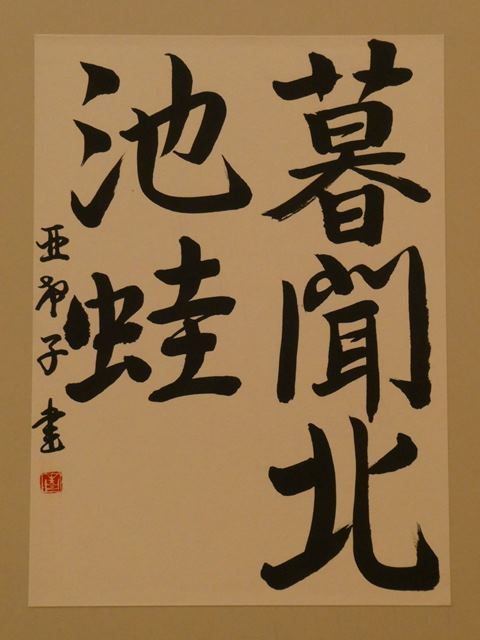 暮聞北
池蛙
亜希子書